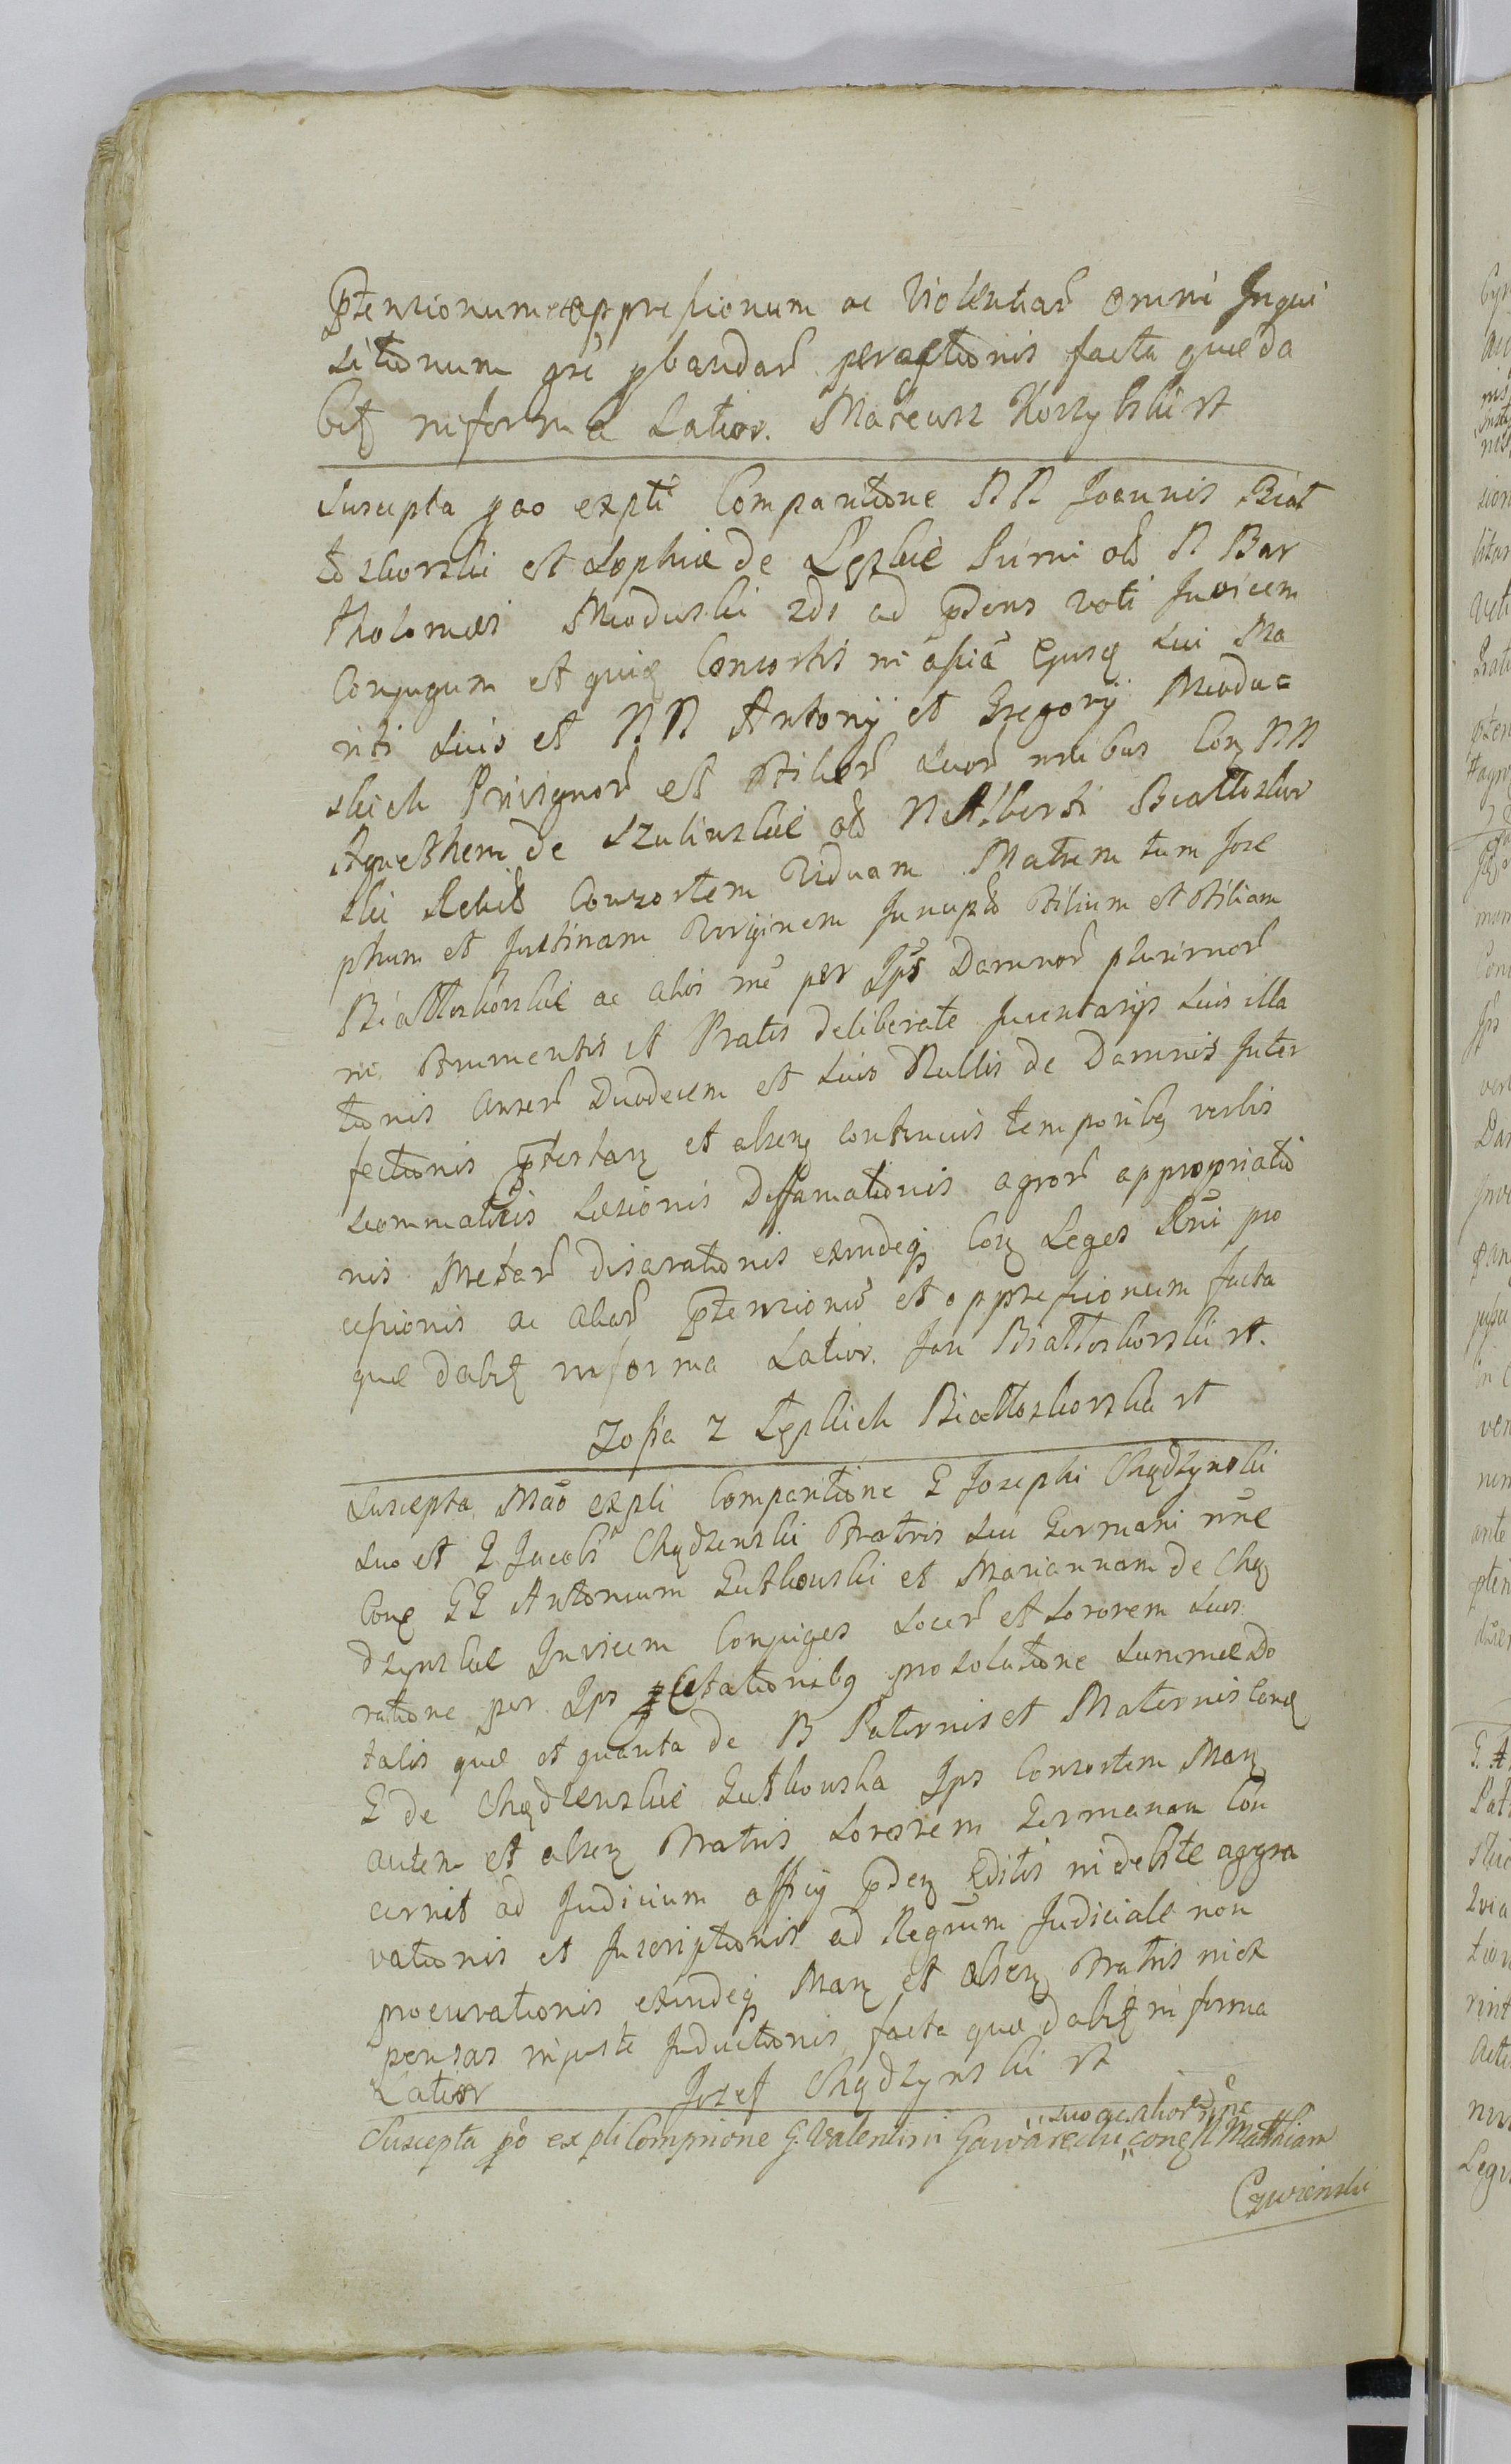 ptensionum et oppressionum ac Violentiar omni Inqui
sitionum gre pbandar peractionis facta quæ da
bit in forma Latior. Mateusz Koszybski rt
Suscepta pao expti Comparitione NN Joannis Biał
łoskorski et Zophiæ de Łępkie Primi olb N Bar
tholomæi Mioduski 2di ad pdens voti Invicem
Conjugum et quiq Consortis in assia Ejusq sui Ma
riti suis et NN Antonij et Gregorij Miodu=
skich Privignor et Filior suor nnibus Con NN
Agnethem de Szulinskie olb N Alberti Białłoskor
ski Relict Consortem Viduam Matrem tum Jose
phum et Justinam Virginem Innupta Filium et Filiam
Białłoskorskie ac alios me per Ips Damnor plurimor
in Frumentis et Pratis deliberate Jumentarijs suis illa
tionis anser Duodecem et suis Nullis de Damnis Inter
fectionis ptestanq et absenq continuis temporibq verbis
scommaticis Læsionis Diffamationis agror appropriatio
nis Metar disarationis exindeq Con Leges Rni pro
cessionis ac aliar ptensionu et oppressionum facta
quæ dabit in forma Latior. Jan Białłoskorski rt.
Zofia z Łępkich Białłoskorska rt
Suscepta Mao expli Comparitione G Josephi Chądzynski
suo et G Jacobi Chądzenski Fratris sui Germani nne
Conq GG Antonium Gutkowski et Mariannam de Chą
dzynskie Invicem Conjuges Socer et Sororem suos
ratione per Ips Citationibq pro solutione summæ Do
talis quæ et quanta de B Paternis et Maternis Conq
G de Chądzenskie Gutkowska Ips Consortem Manq
autem et absenq Fratris Sororem Germanam Con
cernit ad Judicium officij pdenq Editis indebite aggra
vationis et Inscriptionis ad Regrum Judiciale non
procurationis exindeq Manq et absenq Fratris in ex
pensas injuste Inductionis facta quæ dabit in forma
Latior Jozef Chądzynski rt
suo ac alior nne
Suscepta po expli Comprione G. Valentini Gawarecki conq N Matthiam
Czwienski